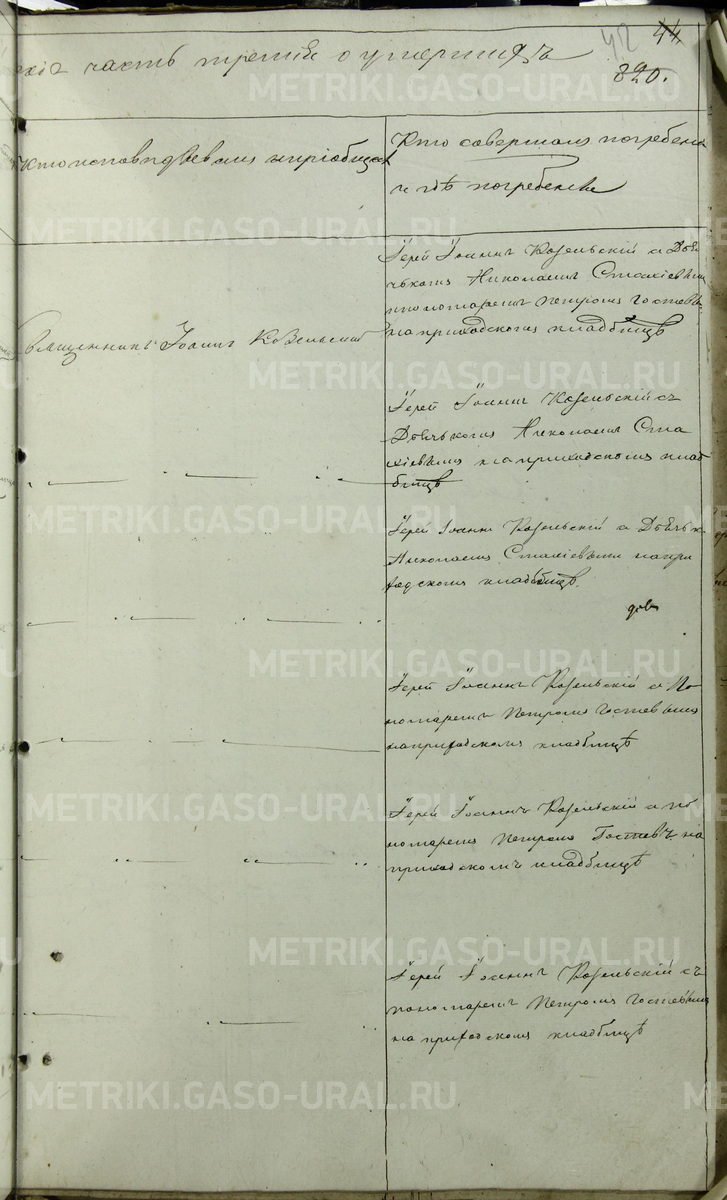 42 44
часть третия о умерших
820.
Кто исповедывал и приобщал
Кто совершал погребение
и где погребены
Священник Иоанн Козельский
Iерей Iоанн Козельскiй с Дьяч
Николаем Стахiевым
и пономарем Петром Гостевым
на приходском кладбище
Iерей Iоанн Козельскiй съ
Дьячком Николаем Ста
хiевым на приходском клад
бище
Iерей Iоанн Козельскiй с Дьячк
Николаем Стахiевым на при
ходском кладбище
Iерей Iоаннъ Козельскiй с По
номарем Петром Гостевым
на приходском кладбищѣ
Iерей Iоаннъ Козельскiй с по
номарем Петром Гостевъ на
приходском кладбищѣ
Iерей Iоаннъ Козельскiй съ
пономарем Петром Гостевым
на приходском кладбищѣ
METRIKI.GASO-URAL.RU